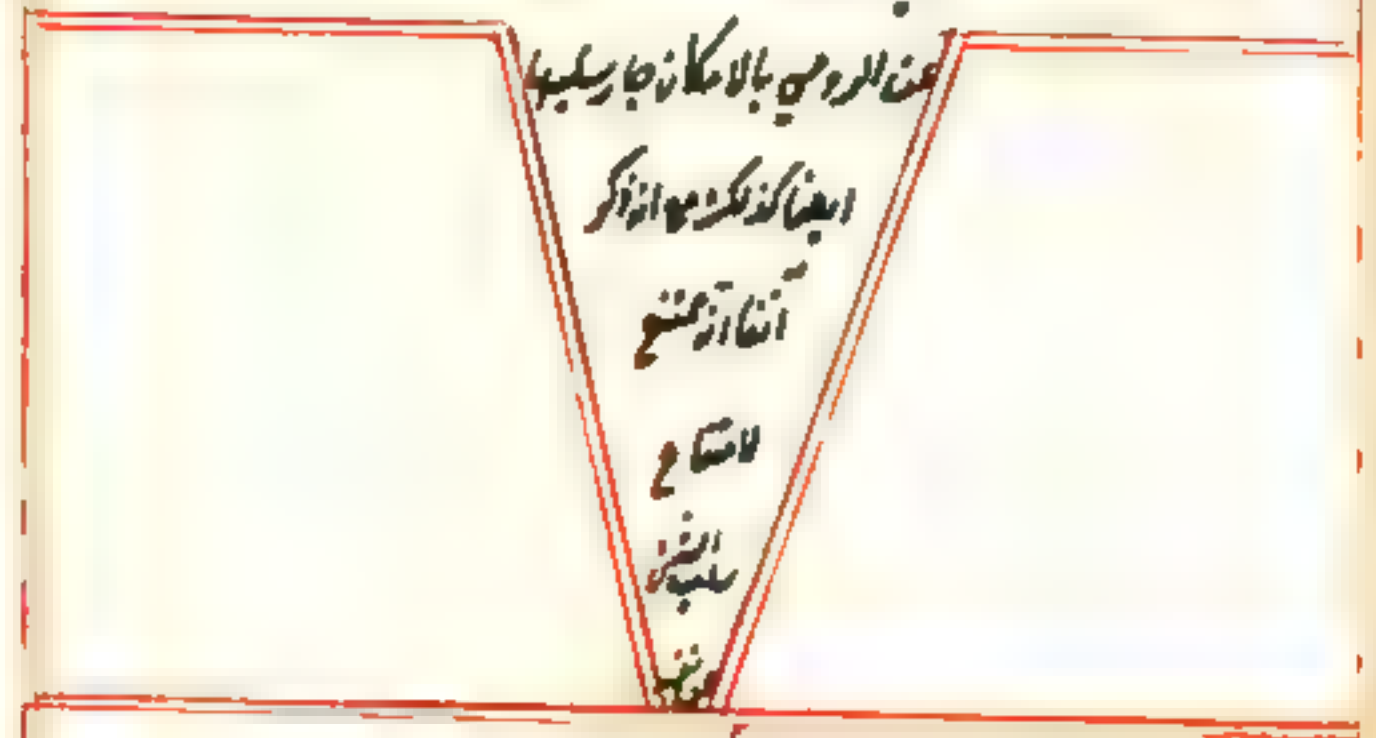 عن اللزومي بالامكان جاز سلبها
ايضا كذلك مع انه ذكر
آنفا انه ممتنع
لامتناع
سلب الشئ
عن نفسه